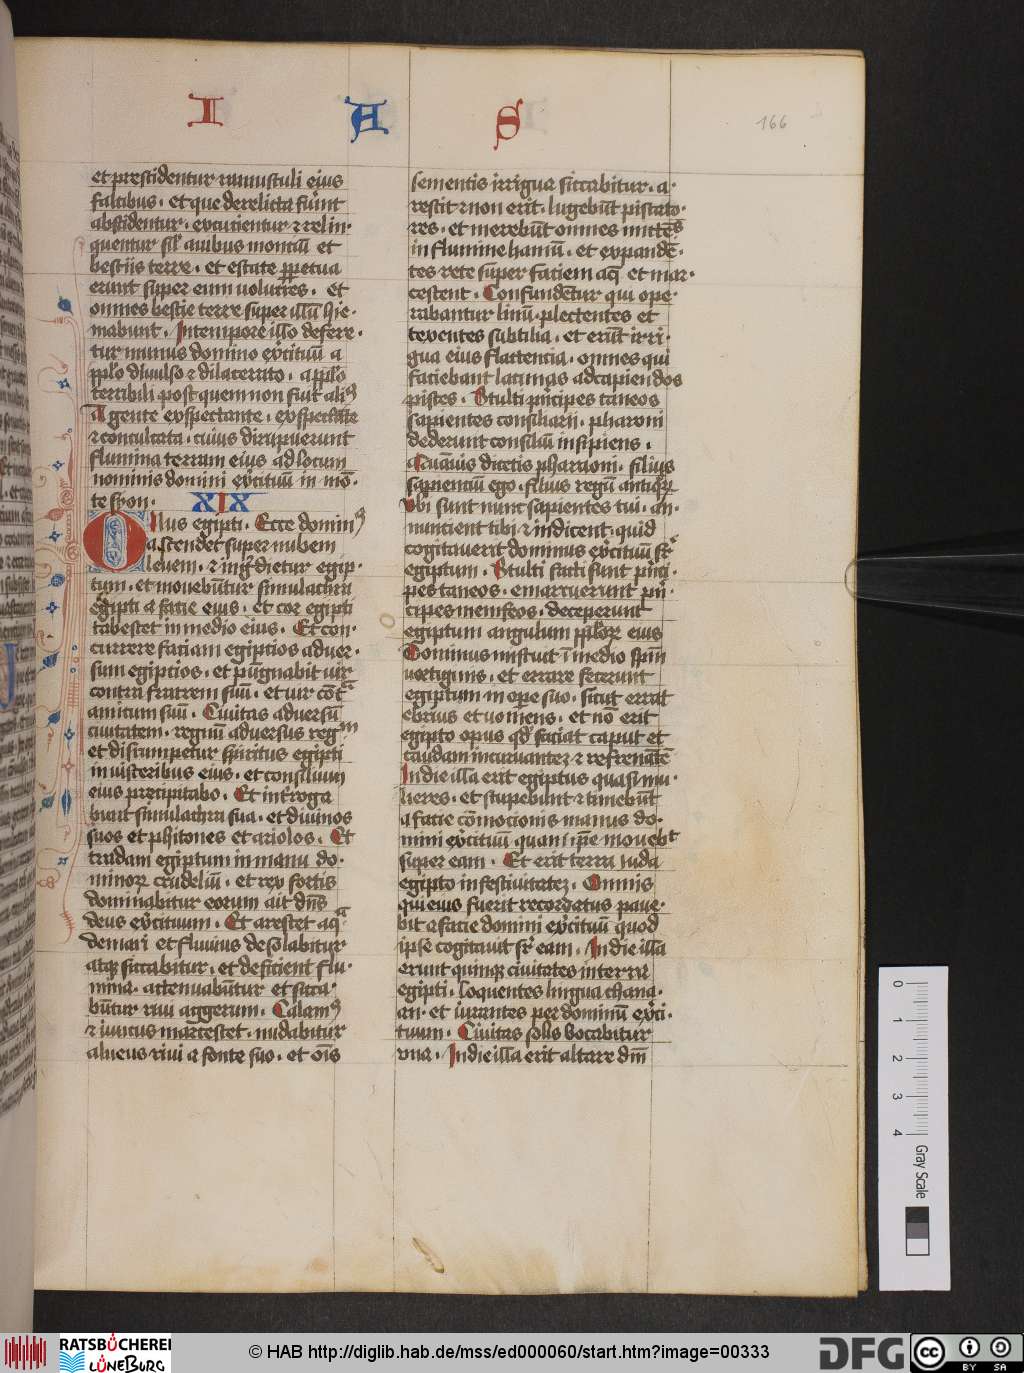 I A S
166
et prescidentur ramusculi eius
falcibus . et que derelicta fuint
abscidentur . excutientur ⁊ relin-
quentur sil' auibus montiū et
bestijs terre . et estate ꝑpetua
erunt super eum uolucres . et
omnes bestie terre super illū hie-
mabunt . In tempore illo defere-
tur munus domino exꝰcituū a
ppl'o diuulso ⁊ dilacerato . a ppl'o
terribili post quem non fuit aliꝰ
A gente exspectante . exspectante
⁊ conculcata . cuius diripuerunt
flumina terram eius ad locum
nominis domini exꝰcituū in mō-
te syon . XIX
Onus egipti . Ecce dominꝰ
ascendet super nubem
leuem . ⁊ ingͥdietur egip-
tum . et mouebūtur simulachra
egipti a facie eius . et cor egipti
tabescet in medio eius . Et con-
currere faciam egiptios aduer-
sum egiptios . et pugnabit uir
contra fratrem suū . et uir cōtᵃ
amicum suū . Ciuitas aduersū
ciuitatem . regnū aduersus regᵐ
et disrumpetur spiritus egipti
in visceribus eius . et consilium
eius precipitabo . Et intͬroga
bunt simulachra sua . et diuinos
suos et phitones et ariolos . Et
tradam egiptum in manu do-
minoꝝ crudeliū . et rex fortis
dominabitur eorum ait dn̄s
deus exꝰcituum . Et arescet aqᵃ
de mari et fluuius desolabitur
atqꝫ siccabitur . et deficient flu-
mina . attenuabūtur et sicca-
būtur riui aggerum . Calamꝰ
⁊ iuncus marcescet . nudabitur
alueus riui a fonte suo . et oīs
sementis irrigua siccabitur . a-
rescit ⁊ non erit . lugebūt piscato-
res . et merebūt omnes mittēs
in flumine hamū . et expandē-
tes rete super faciem aqͣ et mar-
cescent . Confundētur qui ope-
rabantur linū . plectentes et
texentes subtilia . et erūt irri-
gua eius flaccencia . omnes qui
faciebant lacunas ad capiendos
pisces . Stulti pͥncipes taneos
sapientes consiliarij . pharaoni
dederunt consiliū insipiens .
Quāuis dicetis pharaoni . filius
sapienciū ego . filius regū antiqͦꝝ
Vbi sunt nunc sapientes tui . an-
nuncient tibi ⁊ indicent . quid
cogitauerit dominus exꝰcituū sͬ
egiptum . Stulti facti sunt pͥnci-
pes taneos . emarcuerunt pͥn-
cipes memfeos . deceperunt
egiptum angulum ppl'oꝝ eius
Dominus miscuit ī medio spm̄
uertiginis . et errare fecerunt
egiptum in oꝑe suo . sicut errat
ebrius et uomens . et nō erit
egipto opus qd' faciat caput et
caudam incuruantez ⁊ refrenātē
In die illa erit egiptus quasi mu-
lieres . et stupebunt ⁊ timebūt
a facie cōmocionis manus do-
mini exꝰcituū quam ip̄e mouebᵗ
super eam . Et erit terra iuda
egipto in festiuitatez . Omnis
qui eius fuerit recordatus paue-
bit a facie domini exꝰcituū quod
ipse cogitauit sͬ eam . In die illa
erunt quinqꝫ ciuitates in terra
egipti . loquentes lingua chana-
an . et iurantes per dominū exꝰci-
tuum . Ciuitas solis vocabitur
vna . In die illa erit altare dn̄i
0 1 2 3 4
Gray Scale
RATSBÜCHEREI LÜNEBURG
© HAB http://diglib.hab.de/mss/ed000060/start.htm?image=00333
DFG
cc BY SA